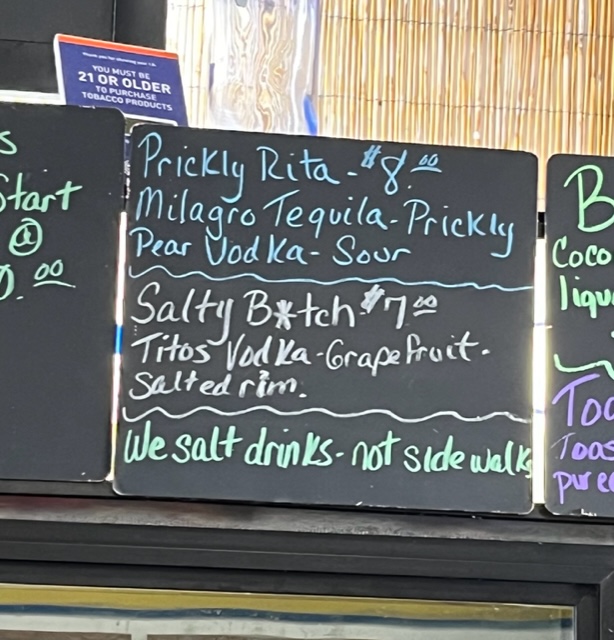 YOU MUST BE
21 OR OLDER
TO PURCHASE
TOBACCO PRODUCTS
s
Start
@
0.00
Prickly Rita - $8.00
Milagro Tequila - Prickly
Pear Vodka - Sour
Salty B*tch $7.00
Titos Vodka - Grapefruit.
Salted rim.
We salt drinks - not sidewalks
B
Coco
liqu
Toa
Toas
puree